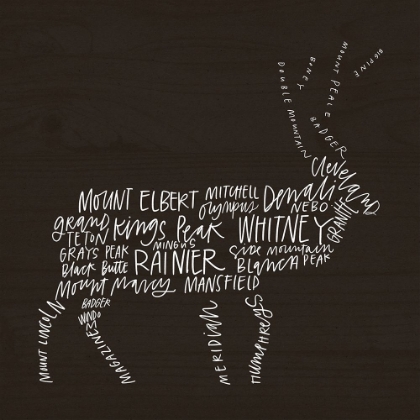 BIGPINE
MOUNT PEALE
BONEY
DOUBLE MOUNTAIN
BADGER
Cleveland
MOUNT ELBERT MITCHELL Denali
Olympus NEBO
GRANITE
grand Kings Peak WHITNEY
TETON MINGUS
GRAYS PEAK RAINIER Side Mountain
Black Butte Blanca PEAK
Mount Marcy MANSFIELD
MOUNT LINCOLN
BADGER
WINDO
MAGAZINE
MERIDIAN
Humphreys